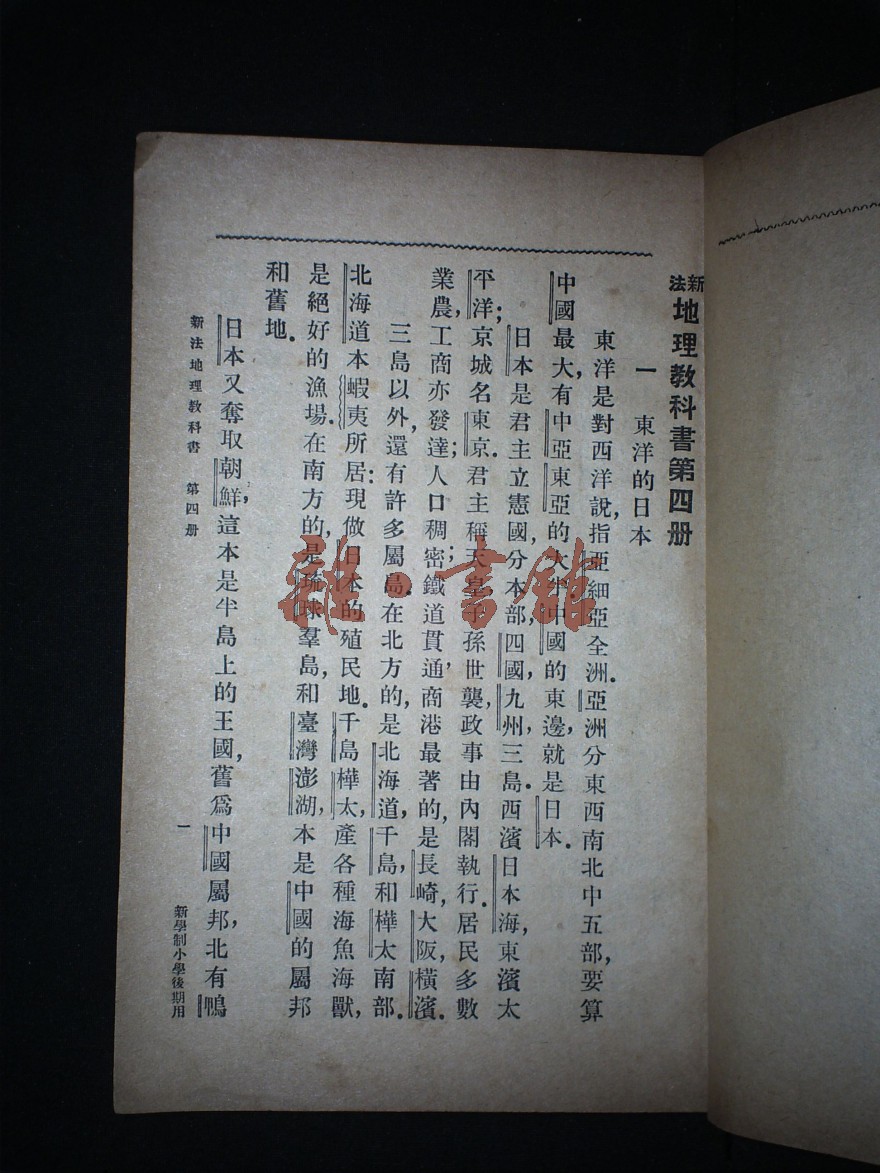 新法地理教科書第四册
一　東洋的日本
東洋是對西洋說,指亞細亞全洲.亞洲分東西南北中五部,要算
中國最大,有中亞東亞的大半.中國的東邊,就是日本.
日本是君主立憲國,分本部,四國,九州,三島.西濱日本海,東濱太
平洋;京城名東京.君主稱天皇,子孫世襲,政事由內閣執行.居民多數
業農,工商亦發達;人口稠密;鐵道貫通,商港最著的,是長崎,大阪,橫濱.
三島以外,還有許多屬島.在北方的,是北海道,千島,和樺太南部.
北海道本蝦夷所居:現做日本的殖民地.千島樺太,產各種海魚海獸,
是絕好的漁場.在南方的,是琉球羣島,和臺灣澎湖,本是中國的屬邦
和舊地.
日本又奪取朝鮮,這本是半島上的王國,舊爲中國屬邦,北有鴨
新法地理教科書　第四册　一　新學制小學後期用
雜·書館